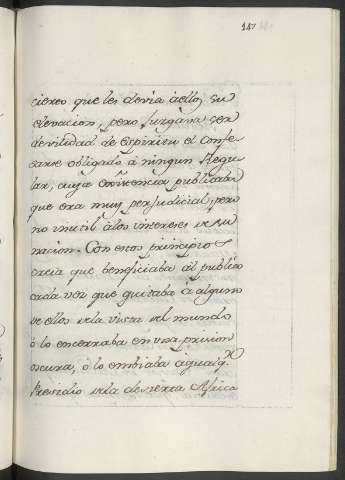 147
cierto que les devia à ellos su
elevacion, pero juzgava ser
devilidad de espiritu el confe-
sarse obligado à ningun Regu-
lar, cuya existencia publicaba
que era muy perjudicial, pero
no inutil à los intereses de su
nacion. Con estos principios
creia que beneficiaba al publico
cada vez que quitaba à alguno
de ellos de la vista del mundo
ò lo encerraba en una prision
oscura, ò lo embiaba à qualq.^r
Presidio de la desierta Africa